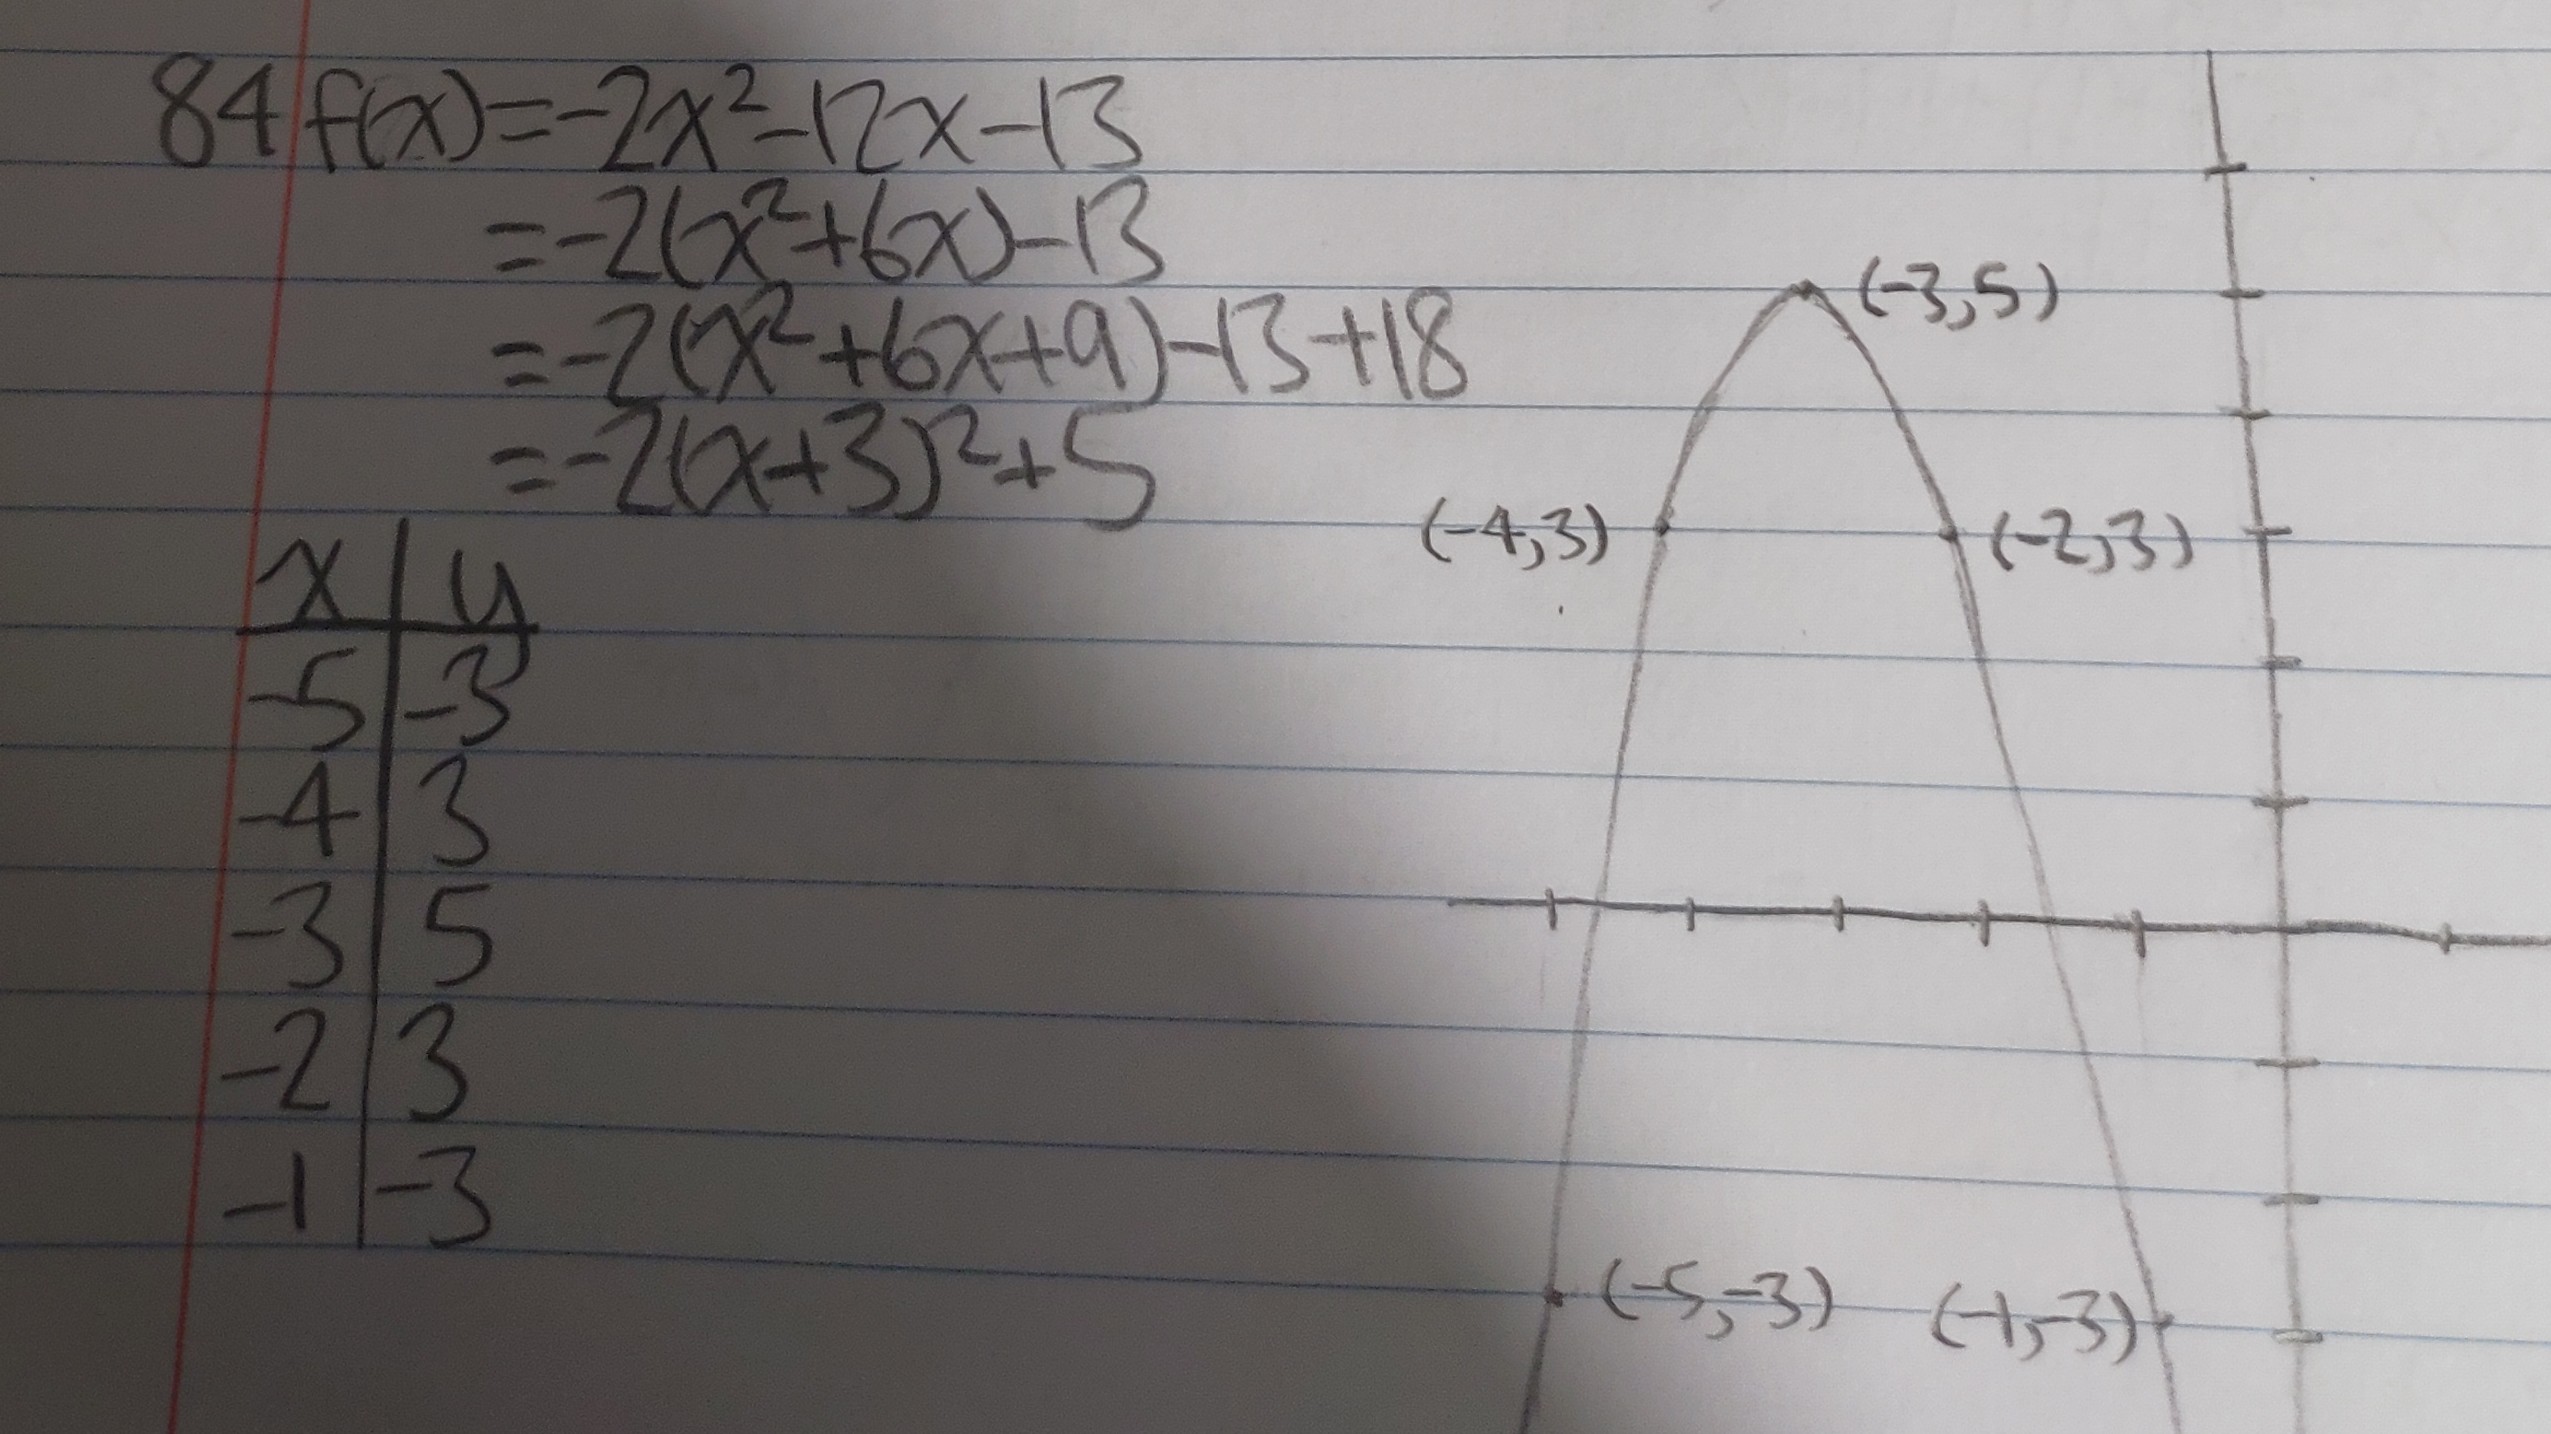 84 f(x)=-2x²-12x-13
=-2(x²+6x)-13
=-2(x²+6x+9)-13+18
=-2(x+3)²+5
x | y
-5 | -3
-4 | 3
-3 | 5
-2 | 3
-1 | -3
(-3,5)
(-4,3) (-2,3)
(-5,-3) (-1,-3)